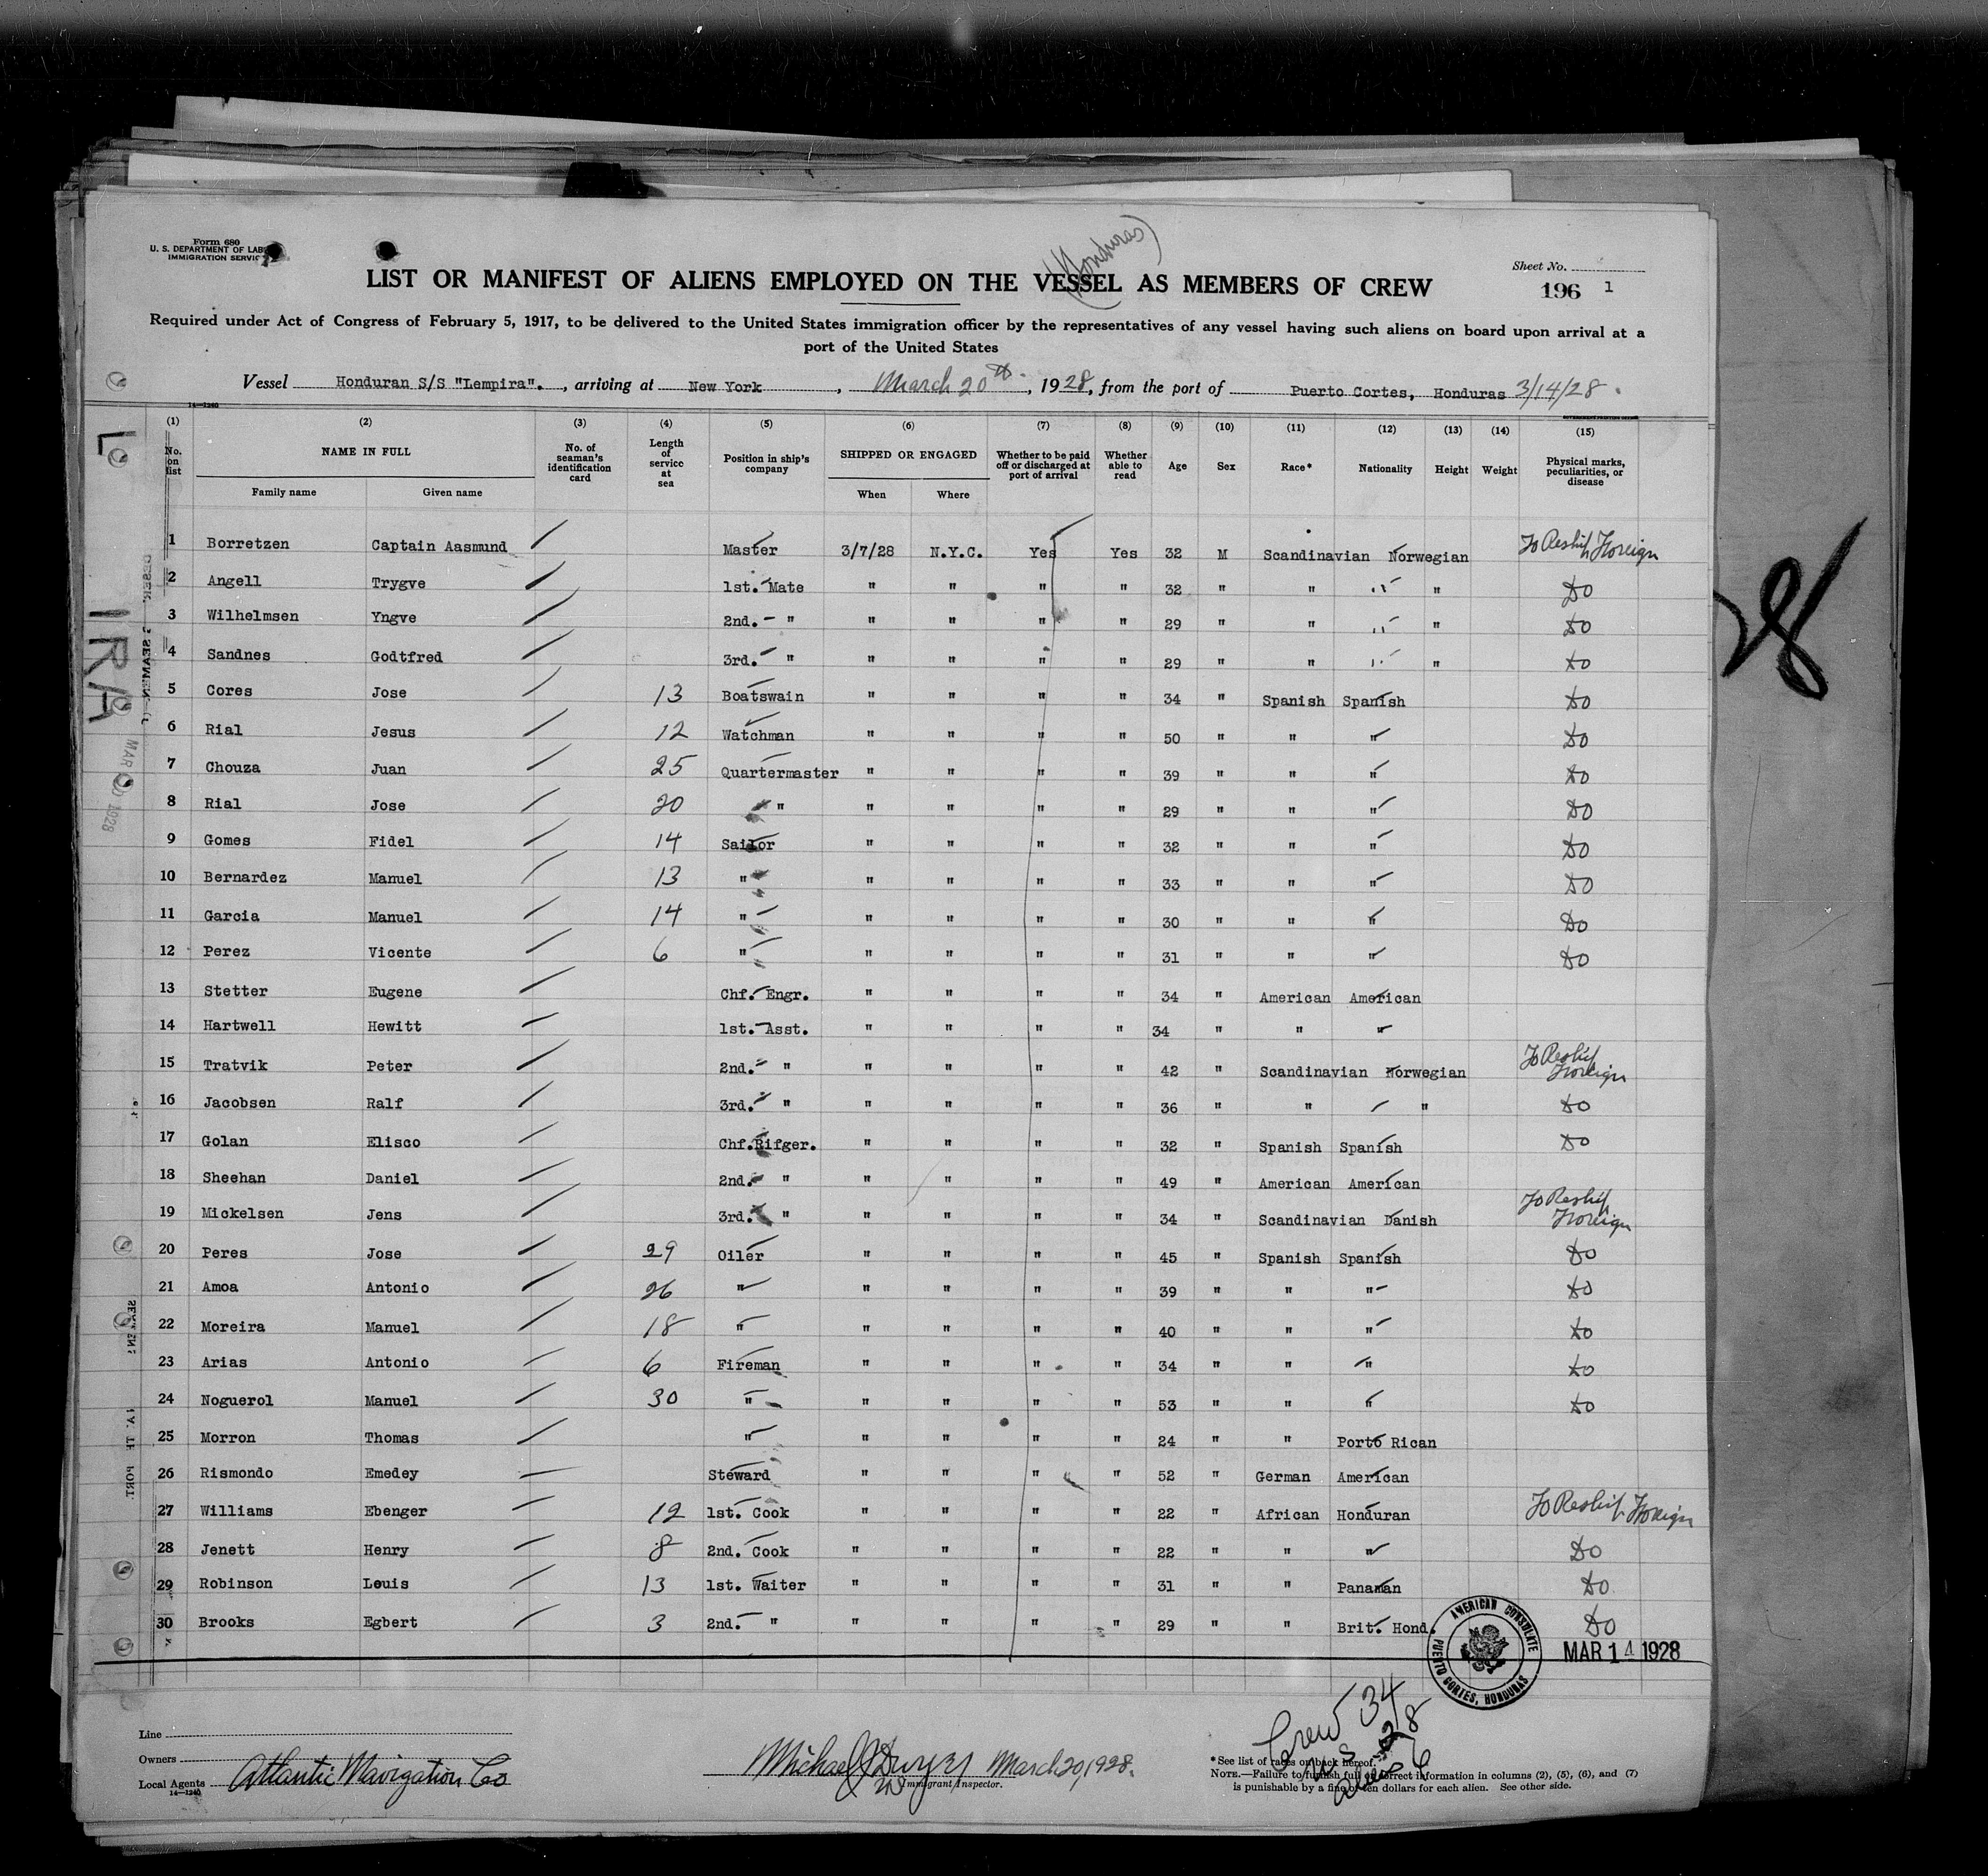 Form 680
U. S. DEPARTMENT OF LAB
IMMIGRATION SERVIC
(Honduras)
LIST OR MANIFEST OF ALIENS EMPLOYED ON THE VESSEL AS MEMBERS OF CREW
Sheet No.
196 1
Required under Act of Congress of February 5, 1917, to be delivered to the United States immigration officer by the representatives of any vessel having such aliens on board upon arrival at a
port of the United States
Vessel Honduran S/S "Lempira". , arriving at New York , March 20th. , 1928, from the port of Puerto Cortes, Honduras 3/14/28.
14—1240
(1) (2) (3) (4) (5) (6) (7) (8) (9) (10) (11) (12) (13) (14) (15)
No. on list NAME IN FULL No. of seaman's identification card Length of service at sea Position in ship's company SHIPPED OR ENGAGED Whether to be paid off or discharged at port of arrival Whether able to read Age Sex Race* Nationality Height Weight Physical marks, peculiarities, or disease
Family name Given name When Where
1 Borretzen Captain Aasmund Master 3/7/28 N.Y.C. Yes Yes 32 M Scandinavian Norwegian To Reship Foreign
2 Angell Trygve 1st. Mate " " " " 32 " " " " Do
3 Wilhelmsen Yngve 2nd. " " " " " 29 " " " " Do
4 Sandnes Godtfred 3rd. " " " " " 29 " " " " Do
5 Cores Jose 13 Boatswain " " " " 34 " Spanish Spanish Do
6 Rial Jesus 12 Watchman " " " " 50 " " " Do
7 Chouza Juan 25 Quartermaster " " " " 39 " " " Do
8 Rial Jose 20 " " " " " 29 " " " Do
9 Gomes Fidel 14 Sailor " " " " 32 " " " Do
10 Bernardez Manuel 13 " " " " " 33 " " " Do
11 Garcia Manuel 14 " " " " " 30 " " " Do
12 Perez Vicente 6 " " " " " 31 " " " Do
13 Stetter Eugene Chf. Engr. " " " " 34 " American American
14 Hartwell Hewitt 1st. Asst. " " " " 34 " " "
15 Tratvik Peter 2nd. " " " " " 42 " Scandinavian Norwegian To Reship Foreign
16 Jacobsen Ralf 3rd. " " " " " 36 " " " Do
17 Golan Elisco Chf.Rifger. " " " " 32 " Spanish Spanish Do
18 Sheehan Daniel 2nd. " " " " " 49 " American American
19 Mickelsen Jens 3rd. " " " " " 34 " Scandinavian Danish To Reship Foreign
20 Peres Jose 29 Oiler " " " " 45 " Spanish Spanish Do
21 Amoa Antonio 26 " " " " " 39 " " " Do
22 Moreira Manuel 18 " " " " " 40 " " " Do
23 Arias Antonio 6 Fireman " " " " 34 " " " Do
24 Noguerol Manuel 30 " " " " " 53 " " " Do
25 Morron Thomas " " " " " 24 " " Porto Rican
26 Rismondo Emedey Steward " " " " 52 " German American
27 Williams Ebenger 12 1st. Cook " " " " 22 " African Honduran To Reship Foreign
28 Jenett Henry 8 2nd. Cook " " " " 22 " " " Do
29 Robinson Louis 13 1st. Waiter " " " " 31 " " Panaman Do
30 Brooks Egbert 3 2nd. " " " " " 29 " " Brit. Hond. Do
AMERICAN CONSULATE
PUERTO CORTES, HONDURAS
MAR 14 1928
28
MAR 20 1928
Line
Owners
Local Agents Atlantic Navigation Co
14—1240
Michael J Dwyer March 20, 1928.
Immigrant Inspector.
Crew 34
U S 6
Aliens 28
*See list of races on back hereof.
NOTE.—Failure to furnish full or correct information in columns (2), (5), (6), and (7)
is punishable by a fine of ten dollars for each alien. See other side.